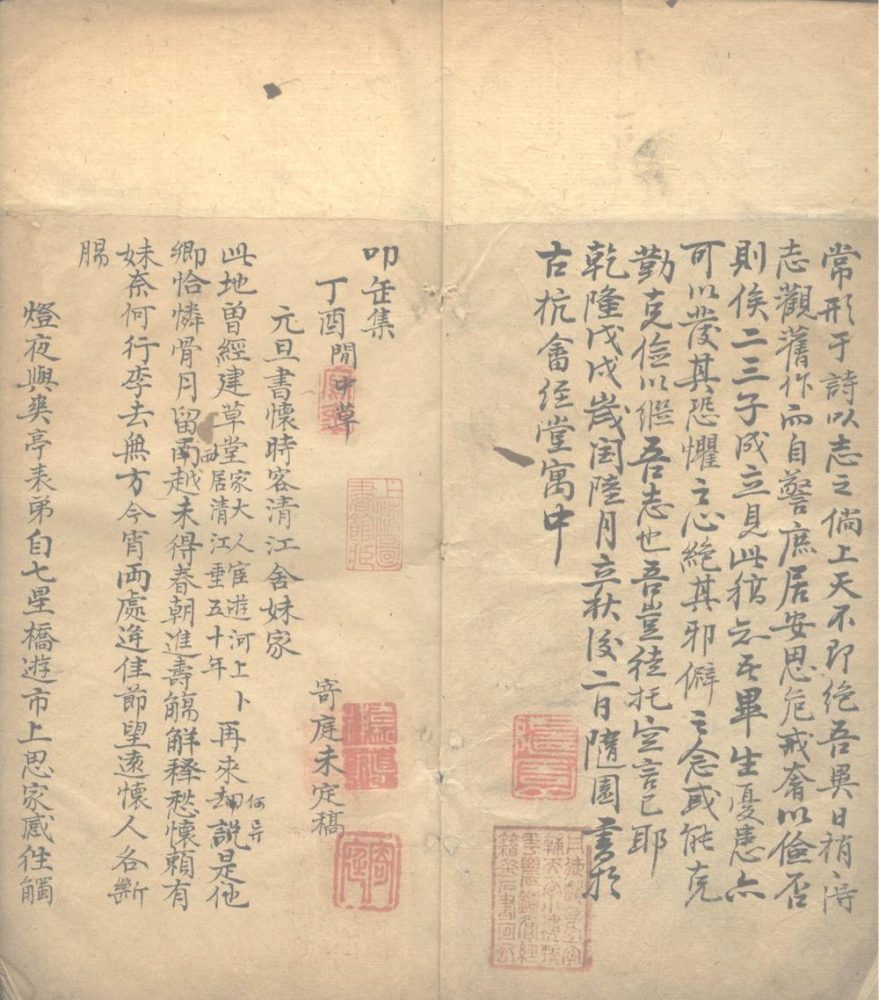 常形于詩以志之倘上天不即绝吾異日稍得
志觀舊作而自警庶居安思危戒奢以儉否
則俟二三子成立見此稿知吾畢生憂患亦
可以發其恐懼之心絶其邪僻之念或能克
勤克儉以繼吾志也吾豈徒托空言已耶
乾隆戊戌歲闰陸月立秋後二日隨園書於
古杭會經堂寓中
叩缶集
丁酉閒中草
寄庭未定稿
元旦書懷時客清江舍妹家
此地曽經建草堂家大人宦遊河上卜居清江垂五十年再来何异却說是他
鄉恰憐骨月留南越未得春朝進壽觴解释愁懷賴有
妹奈何行李去無方今宵兩處逢佳節望遠懷人各斷
腸
燈夜與奕亭表弟自七星橋遊市上思家感往觸